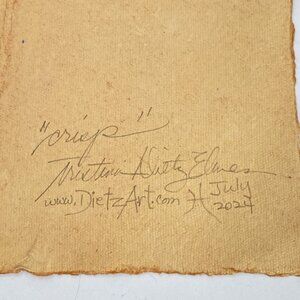 "crisp"
Kristina Dietz Elmes
www.DietzArt.com H July
2024